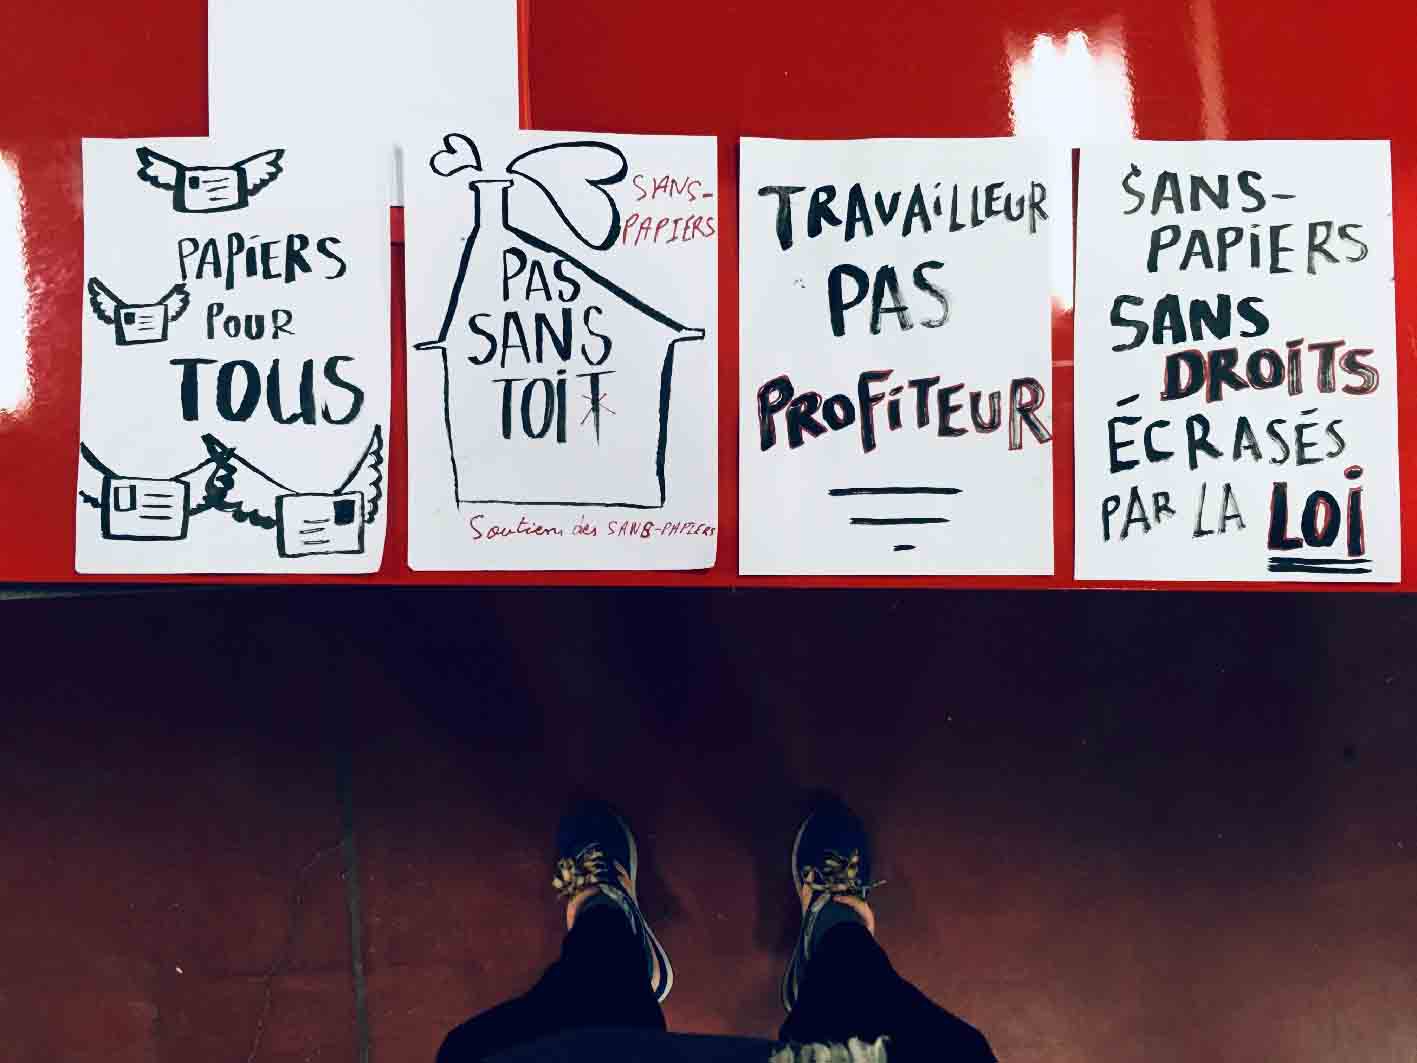 PAPiERS
POUR
TOUS
SANS-
PAPIERS
PAS
SANS
TOiT
Soutien des SANS-PAPIERS
TRAVAiLLEUR
PAS
PROFiTEUR
SANS-
PAPiERS
SANS
DROiTS
ÉCRASÉS
PAR LA LOi